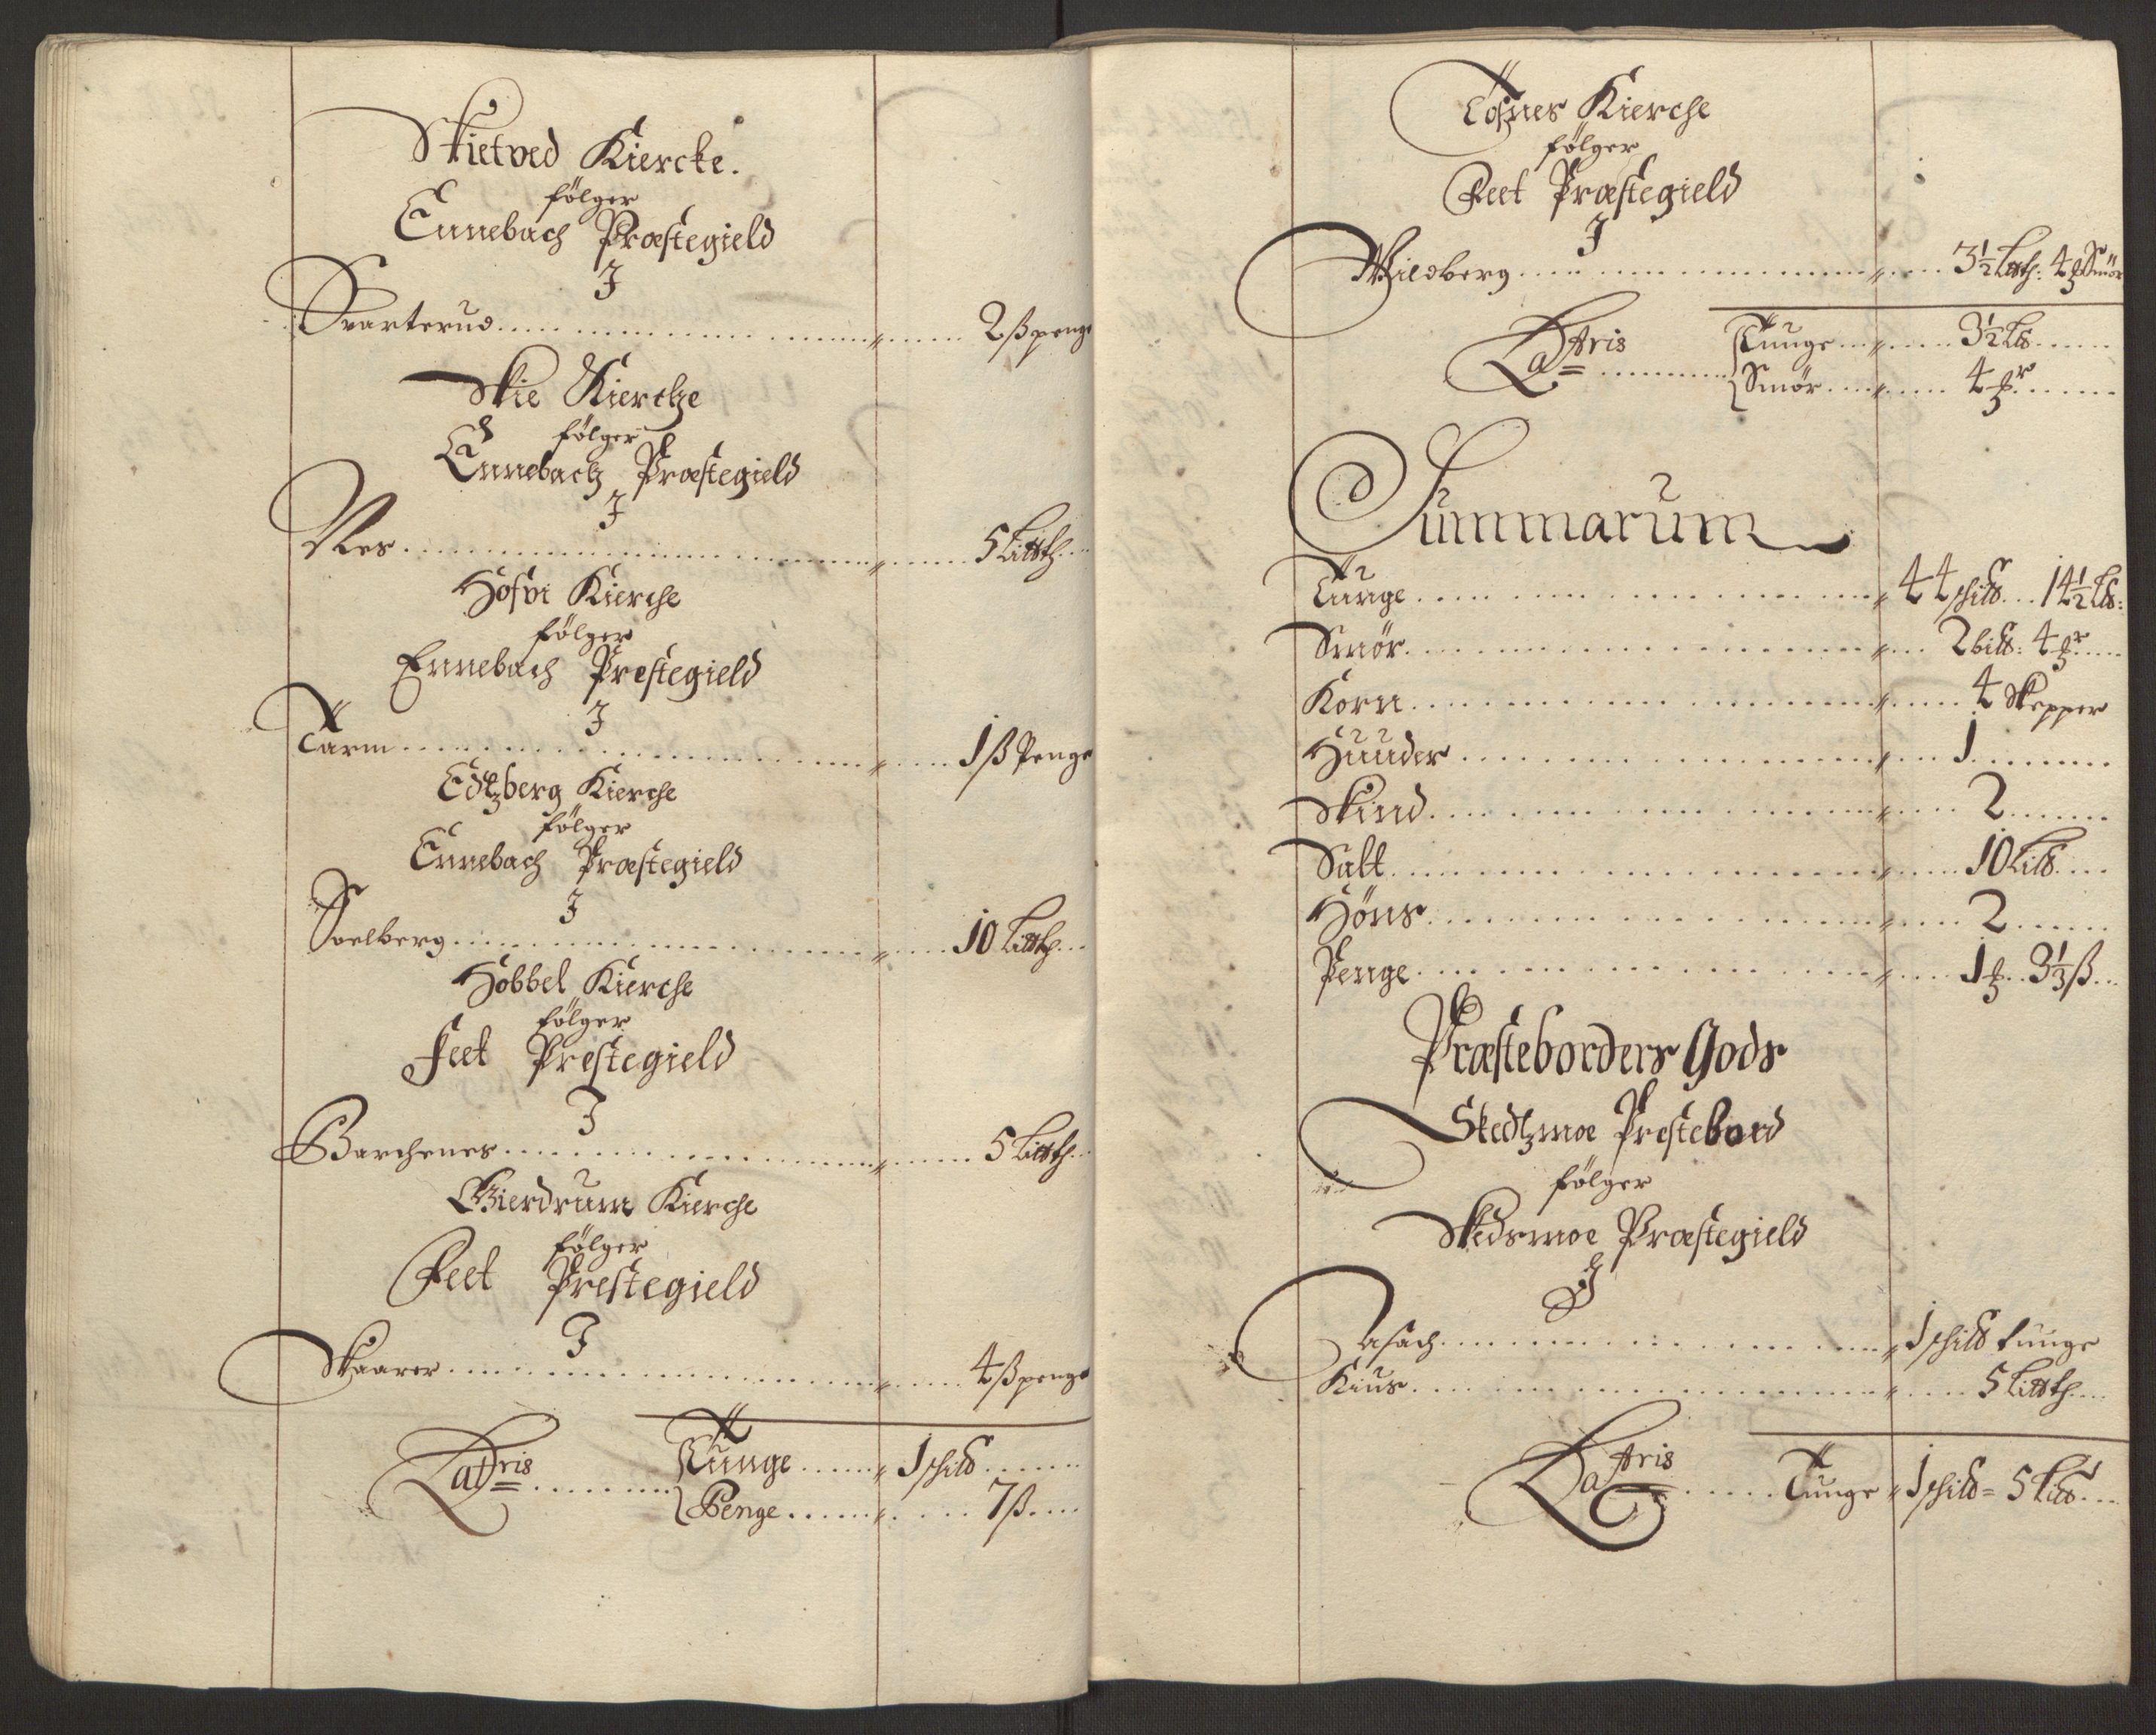 Skietved Kiercke.
følger
Ennebach Præstegield
J
Svarterud 2 ß penge
Skie Kierche
følger
Ennebach Præstegield
J
Nes 5 Litt℔
Hofvi Kierche
følger
Ennebach Prestegield
J
Tarm 1 ß Penge
Edtzberg Kierche
følger
Ennebach Præstegield
J
Soelberg 10 Litt℔
Hobbel Kierche
følger
Feet Prestegield
J
Barchenes 5 Litt℔
Gierdrum Kierche
følger
Feet Prestegield
J
Skaarer 4 ß penge
Latris Tunge 1 sch℔
Penge 7 ß
Kierche
følger
Feet Præstegield
J
Wildberg 3½ Litt℔: 4 Smör
Latris Tunge 3½ L℔
Smör 4
Summarum
Tunge 44 sch℔ 14½ L℔:
Smör 2 b℔: 4
Korn 4 Skepper
Huuder 1
Skind 2
Salt 10 Li℔
Höns 2
Penge 1 3⅓ ß
Præsteborders Gods
Skedtzmoe Prestebord
følger
Skedsmoe Præstegield
J
Asach 1 sch℔ tunge
Kius 5 Litt℔
Latris Tunge 1 sch℔ = 5 Li℔